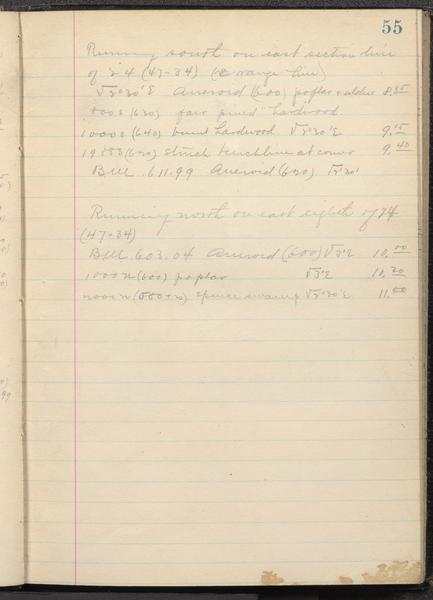 55
Running south on east section line
of 24 (47-34) (range line)
V3°30'E Aneroid (600) poplar & alder 8.35
500 s (630) fair pined hardwood
1000 s (640) burnt hardwood V3°30'E 9.15
1900 s (620) struck benchline at corner 9.40
B.M. 611.99 Aneroid (620) V3°30'
Running north on east eighth of 74
(47-34)
B.M. 603.04 Aneroid (600) V3°E 10.00
1000 n (600) poplar V3°E 10.20
2000 n spruce swamp V3°30'E 11.00